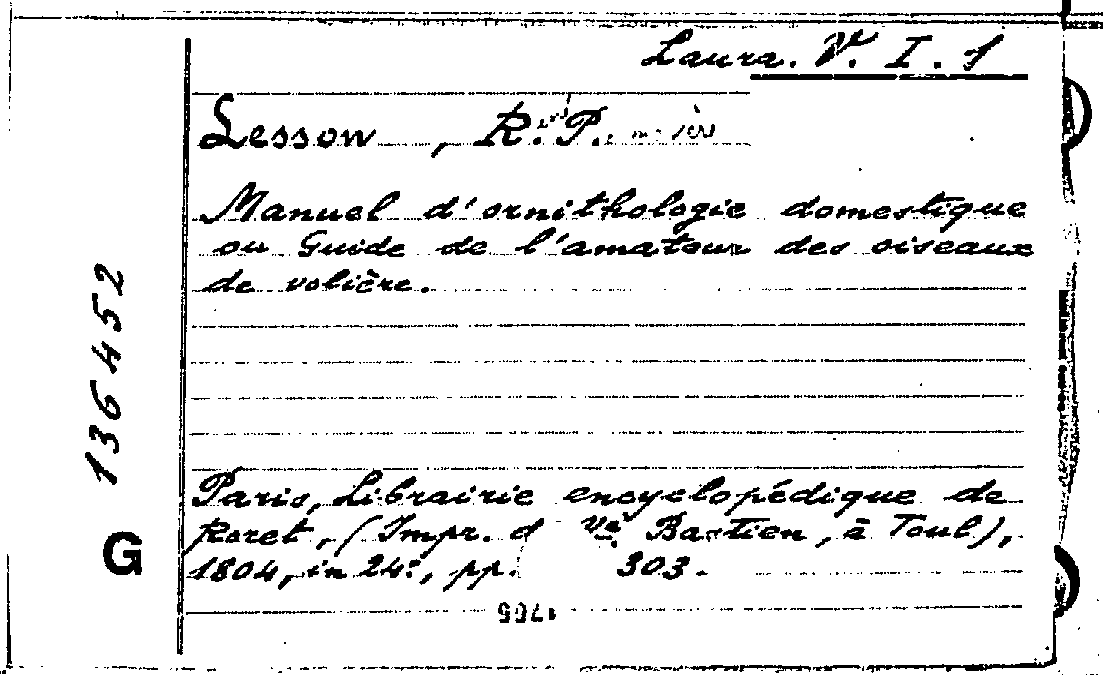 Laura. V. I. 1
Lesson, R. P.
Manuel d'ornithologie domestique
ou Guide de l'amateur des oiseaux
de volière.
136452
Paris, Librairie encyclopédique de
Roret, (Impr. d Ve Bastien, à Toul),
G
1804, in 24º, pp. 303.